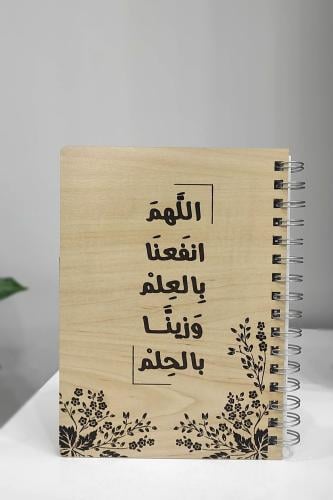 اللَّهمَ
انفَعنَا
بِالعِلمْ
وَزينَّـــا
بالحِلمْ